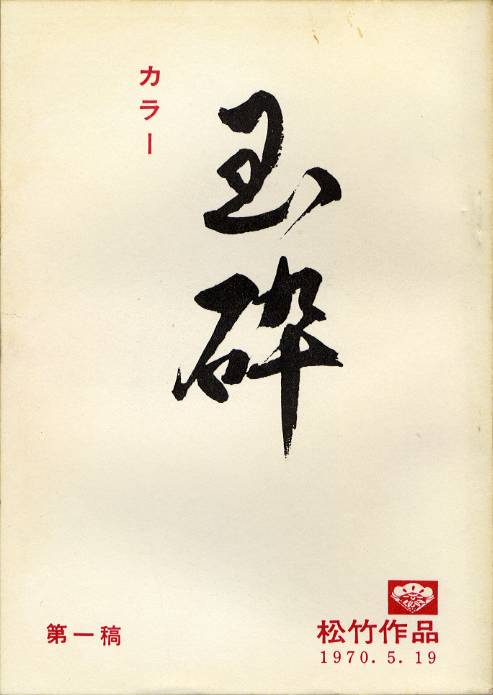 カラー
玉砕
第一稿
松竹作品
1970.5.19